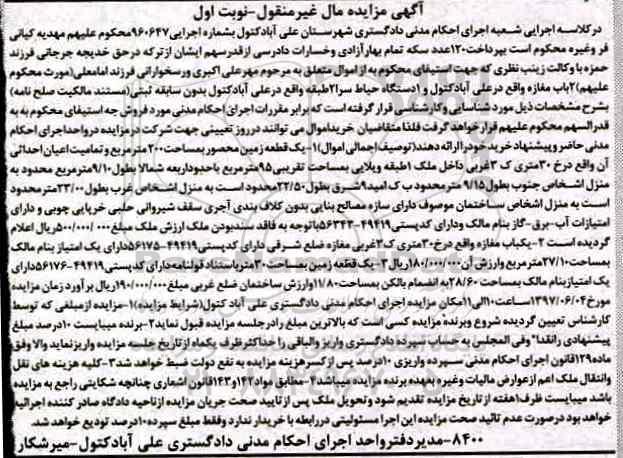 آگهی مزایده مال غیرمنقول-نوبت اول
درکلاسه اجرایی شعبه اجرای احکام مدنی دادگستری شهرستان علی آبادکتول بشماره اجرایی ۹۶۰۶۴۷محکوم علیهم مهدیه کیانی
فر وغیره محکوم است بپرداخت۱۲۰عدد سکه تمام بهارآزادی وخسارات دادرسی ازقدرسهم ایشان ازترکه درحق خدیجه جرجانی فرزند
حمزه با وکالت زینب نظری که جهت استیفای محکوم به از اموال متعلق به مرحوم مهرعلی اکبری ورسخوارانی فرزند امامعلی(مورث محکوم
علیهم)۲باب مغازه واقع درعلی آبادکتول و ۱دستگاه حیاط سرا۲طبقه واقع درعلی آبادکتول بدون سابقه ثبتی(مستند مالکیت صلح نامه)
بشرح مشخصات ذیل مورد شناسایی وکارشناسی قرار گرفته است که برابر مقررات اجرای احکام مدنی مورد فروش جه استیفای محکوم به به
قدرالسهم محکوم علیهم قرارخواهد گرفت فلذا متقاضیان خریداموال می توانند درروز تعیینی جهت شرکت درمزایده درواحداجرای احکام
مدنی حاضر وپیشنهاد خریدخودراارائه دهند(توصیف اجمالی اموال)۱-یک قطعه زمین محصور بمساحت۲۰۰مترمربع و تمامیت اعیان احداثی
آن واقع درخ ۳۰متری ک ۳غربی داخل ملک ۱طبقه ویلایی بمساحت تقریبی۹۵مترمربع باحدوداربعه شمالا بطول۹/۱۰مترمربع محدود به
منزل اشخاص جنوب بطول۹/۱۵مترمحدود ب ک امید۹شرق بطول ۲۲/۵۰محدود است به منزل اشخاص غرب بطول۲۳/۰۰مترمحدود
است به منزل اشخاص ساختمان موصوف دارای سازه مصالح بنایی بدون کلاف بندی آجری سقف شیروانی حلبی خرپایی چوبی و دارای
امتیازات آب-برق-گاز بنام مالک ودارای کدپستی۴۹۴۱۹-۵۶۳۴۳باتوجه به فاقد سندبودن ملک ارزش ملک مبلغ ۵۰۰/۰۰۰/۰۰۰ریال اعلام
گردیده است ۲-یکباب مغازه واقع درخ۳۰متری ک۳غربی مغازه ضلع شرقی دارای کدپستی۴۹۴۱۹-۵۶۱۷۵دارای یک امتیاز بنام مالک
بمساحت۲۷/۱۰مترمربع وارزش آن۱۸۰/۰۰۰/۰۰۰ریال ۳-یک قطعه زمین بمساحت ۳۰متر باستناد قولنامه دارای کدپستی۴۹۴۱۹-۵۶۱۷۶دارای
یک امتیازبنام مالک بمساحت ۲۸/۶۰به انضمام بالکن بمساحت۱۱/۸۰وارزش ساختمان ضلع غربی مبلغ ۱۹۰/۰۰۰/۰۰۰ریال برآورد زمان مزایده
مورخ۱۳۹۷/۰۶/۰۴ساعت۱۰الی۱۱مکان مزایده اجرای احکام مدنی دادگستری علی آباد کتول(شرایط مزایده)۱-مزایده ازمبلغی که توسط
کارشناس تعیین گردیده شروع وبرنده مزایده کسی است که بالاترین مبلغ رادرجلسه مزایده قبول نماید۲-برنده میبایست ۱۰درصد مبلغ
پیشنهادی رانقدا" وفی المجلس به حساب سپرده دادگستری واریز والباقی را حداکثرظرف یکماه ازتاریخ جلسه مزایده واریزنماید والا وفق
ماده۱۲۹قانون اجرای احکام مدنی سپرده واریزی ۱۰درصد پس از کسرهزینه مزایده به نفع دولت ضبط خواهد شد.۳-کلیه هزینه های نقل
وانتقال ملک اعم ازعوارض مالیات وغیره بعهده برنده مزایده میباشد۴-مطابق مواد۱۴۲و۱۴۳قانون اشعاری چنانچه شکایتی راجع به مزایده
باشد میبایست ظرف۱هفته از تاریخ مزایده تقدیم شود وتحویل ملک پس از تایید صحت جریان مزایده ازناحیه دادگاه صادر کننده اجرائیه
خواهد بود درصورت عدم تائید صحت مزایده این اجرا مسئولیتی دررابطه با خریدار ندارد وفقط مبلغ سپرده۱۰درصد تودیع خواهد شد.
۸۴۰۰-مدیردفترواحد اجرای احکام مدنی دادگستری علی آبادکتول-میرشکار